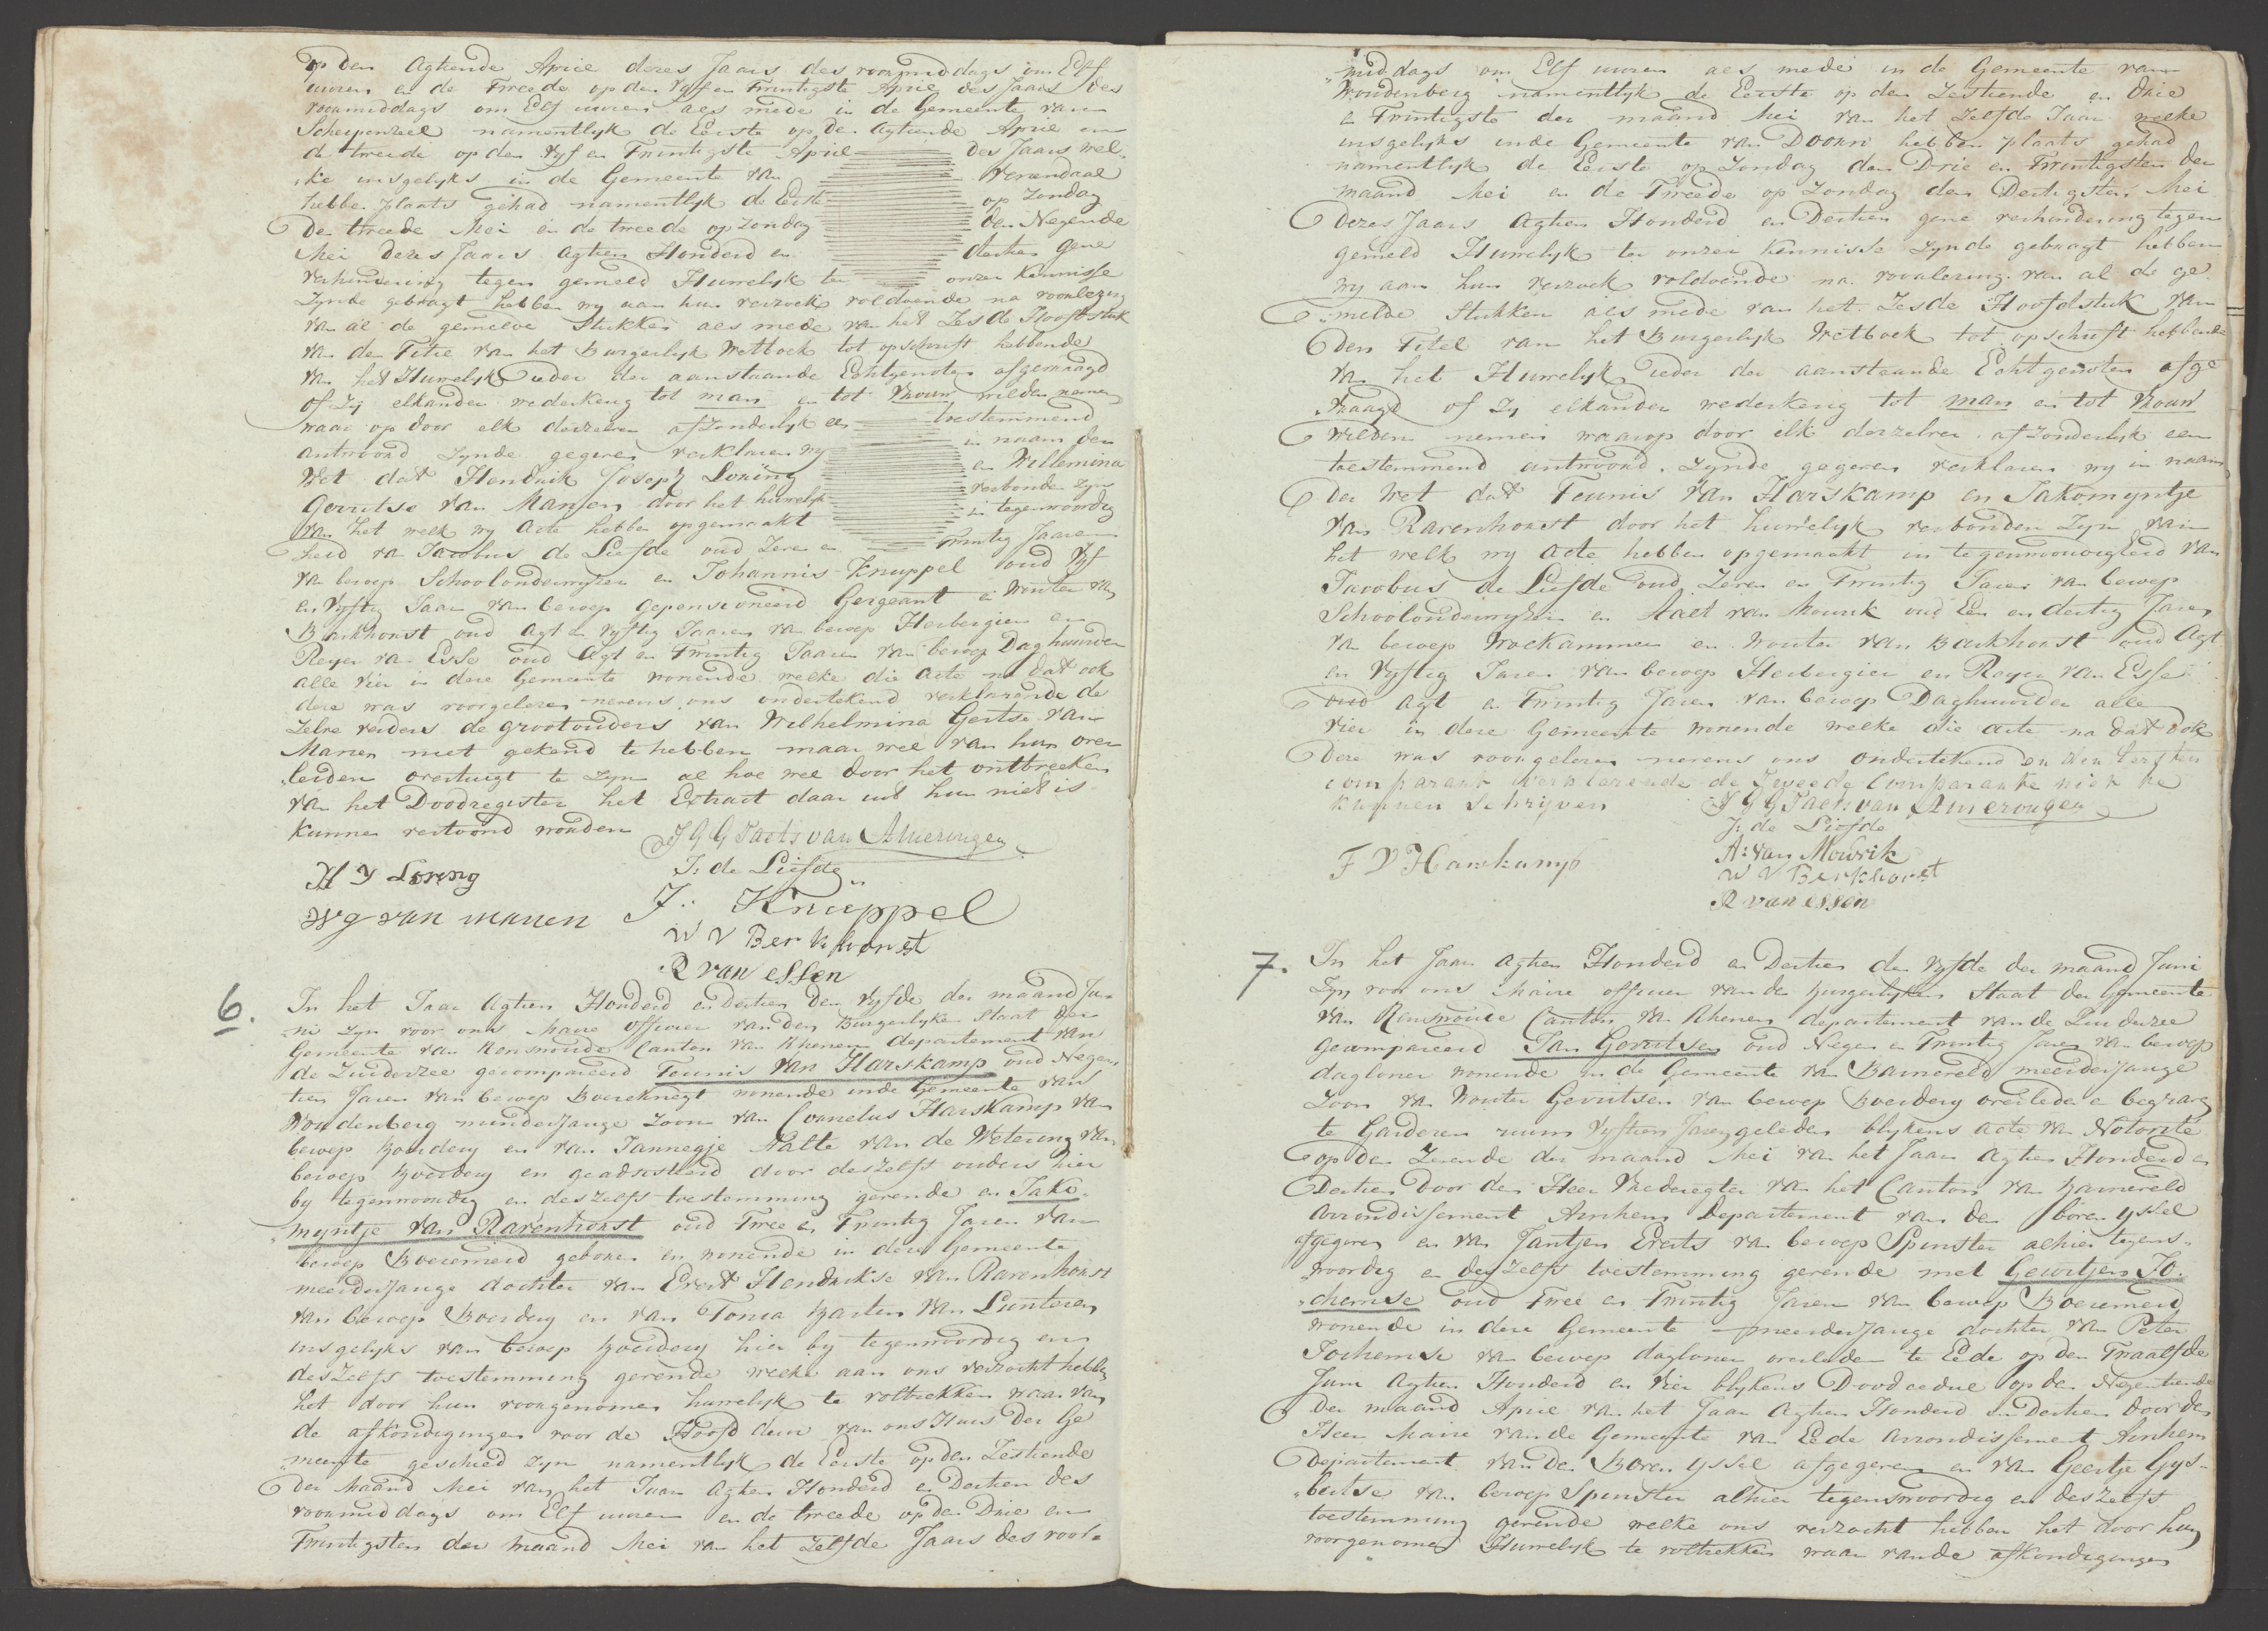 op den Agtiende April dezes Jaars des voormiddags om Elf
uuren en de Tweede op den Vyf en Twintigste April des Jaars des
voormiddags om Elf uuren als mede in de Gemeente van
Scherpenzeel namentlyk de Eerste op de Agtiende April en
de tweede op den Vyf en Twintigste April des Jaars wel„
„ke insgelyks in de Gemeente van Venendaal
hebben plaats gehad namentlyk de Eerste op Zondag
De tweede Mei en de tweede op Zondag den Negende
Mei dezes Jaars Agtien Honderd en dertien gene
verhindering tegen gemeld Huwelyk te onzer kennisse
Zynde gebragt hebben wy aan hun verzoek voldoende na voorlezing
van al de gemelde Stukken als mede van het Zesde Hoofdstuk
van den Titre van het Burgerlyk Wetboek tot opschrift hebbende
van het Huwelyk ieder der aanstaande Echtgenoten afgevraagd
of Zij elkander wederkerig tot man en tot Vrouw wilden nemen
waar op door elk derzelven afzonderlyk een toestemmend
antwoord Zynde gegeven verklaren wy in naam der
Wet dat Hendrik Joseph Loring en Willemina
Gerritse van Manen door het huwelyk verbonden Zyn
van het welk wy Acte hebben opgemaakt in tegenwoordig
heid van Jacobus de Liefde oud Zeven en Twintig Jaaren
van beroep Schoolonderwyzer en Johannis Knuppel oud Vyf
en Vyftig Jaar van beroep gepensioneerd Sergeant en Wouter van
Barkhorst oud Agt en Vyftig Jaaren van beroep Herbergier en
Reyer van Esse oud Agt en Twintig Jaaren van beroep Daghuurder
alle Vier in deze Gemeente wonende welke die Acte na dat ook
deze was voorgelezen nevens ons ondertekend verklarende de
Zelve verders de grootouders van Wilhelmina Gertse van
Manen niet gekend te hebben maar wel van hun over
„leiden overtuigt te Zyn al hoe wel door het ontbreeken
van het Doodregister het Extract daar uit hun niet is
kunnen vertoond worden J G G Taets van Amerongen
H J Loring J: de Liefde
W G van manen J: Knuppel
W V Berkhorst
R van essen
6. In het Jaar Agtien Honderd en Dertien den Vyfde der maand Ju„
ni Zyn voor ons Maire Officier van den Burgerlyke Staat der
Gemeente van Renswoude Canton van Rhenen departement van
de Zuiderzee gecompareerd Teunis van Harskamp oud Negen
tien Jaren van beroep Boereknegt wonende inde Gemeente van
Woudenberg minderjange Zoon van Cornelus Harskamp van
beroep Bouwdery en van Jannegje Aalte van de Wetering van
beroep Boerdery en geadsisteerd door deszelfs ouders hier
by tegenwoordig en deszelfs toestemming gevende en Jako„
„myntje van Ravenhorst oud Twee en Twintig Jaren van
beroep Boeremeid geboren en wonende in deze Gemeente
meerderjange dochter van Evert Hendrikse van Ravenhorst
van beroep Boerdery en van Tonia Barten van Lunteren
insgelyks van beroep Boerdery hier by tegenwoordig en
deszelfs toestemming gevende welke aan ons verzocht hebben
het door hun voorgenomen huwelyk te voltrekken waar van
de afkondigingen voor de Hoofd deur van ons Huis der Ge
„meente geschied Zyn namentlyk de Eerste op den Zestiende
Der Maand Mei van het Jaar Agtien Honderd en Dertien des
voormiddags om Elf uuren en de tweede op den Drie en
Twintigsten der Maand Mei van het Zelfde Jaars des voor„
„middags om Elf uuren als mede in de Gemeente van
Woudenberg namentlyk de Eerste op den Zestiende en Drie
en Twintigste der maand Mei van het Zelfde Jaar welke
insgelyks inde Gemeente van Doorn hebben plaats gehad
namentlyk de Eerste op Zondag den Drie en Twintigsten der
maand Mei en de Tweede op Zondag den Dertigsten Mei
dezes Jaars Agtien Honderd en Dertien gene verhindering tegen
gemeld Huwelyk ter onzer kennisse Zynde gebragt hebben
wy aan hun verzoek voldoende na voorlezing van al de ge
„melde Stukken als mede van het Zesde Hoofdstuk van
den Titel van het Burgerlyk Wetboek tot opschrift hebbende
van het Huwelyk ieder der aanstaande Echtgenoten afge
„vraagd of Zy elkander wederkerig tot man en tot Vrouw
wilden nemen waarop door elk derzelver afzonderlyk een
toestemmend antwoord Zynde gegeven verklaren wy in naam
der Wet dat Teunis van Harskamp en Jakomyntje
van Ravenhorst door het huwelyk verbonden Zyn van
het welk wy Acte hebben opgemaakt in tegenwoordigheid van
Jacobus de Liefde oud Zeven en Twintig Jaren van beroep
Schoolonderwyzer en Aalt van Mourik oud Een en dertig Jaren
van beroep Wolkammer en Wouter van Barkhorst oud Agt
en Vyftig Jaren van beroep Herbergier en Reyer van Esse
oud Agt en Twintig Jaren van beroep Daghuurder alle
Vier in deze Gemeente wonende welke die Acte na dat ook
Deze was voorgelezen nevens ons ondertekend en den eersten
comparant verklarende de Tweede Comparante niet te
kunnen schrijven J G G Taets van Amerongen
J: de Liefde
T V Harskamp A: van Mourik
W V Berkhorst
R van essen
7. In het Jaar Agtien Honderd en Dertien den Vyfde der maand Juni
Zyn voor ons Maire officier van de Burgerlyken Staat der gemeente
van Renswoude Canton van Rhenen departement van de Zuiderzee
Gecompareerd Jan Gerritsen oud Negen en Twintig Jaren van beroep
dagloner wonende in de Gemeente van Barneveld meerderjange
Zoon van Wouter Gerritsen van beroep Boerdery overleden en begraven
te Garderen ruim Vyftien Jaren geleden blykens acte van Notorité
op den Zevende der maand Mei van het Jaar Agtien Honderd en
Dertien door den Heer Vrederegter van het Canton van Barneveld
Arrondissement Arnhem Departement van den boven Yssel
afgegeven en van Jantjen Everts van beroep Spinster alhier tegens„
„woordig en deszelfs toestemming gevende met Geertjen Jo„
„chemse oud Twee en Twintig Jaren van beroep Boeremeid
wonende in deze Gemeente meerderjange dochter van Peter
Jochemse van beroep dagloner overleden te Eede op den Twaalfde
Juni Agtien Honderd en Vier blykens Doodcedul op den Negentiende
Der maand April van het Jaar Agtien Honderd en Dertien door den
Heer Maire van de Gemeente van Eede Arrondissement Arnhem
Departement van den Boven Yssel afgegeven en van Geertje Gys„
„bertse van beroep Spinster alhier tegenswoordig en deszelfs
toestemming gevende welke ons verzocht hebben het door hun
voorgenomen Huwelyk te voltrekken waar van de afkondigingen